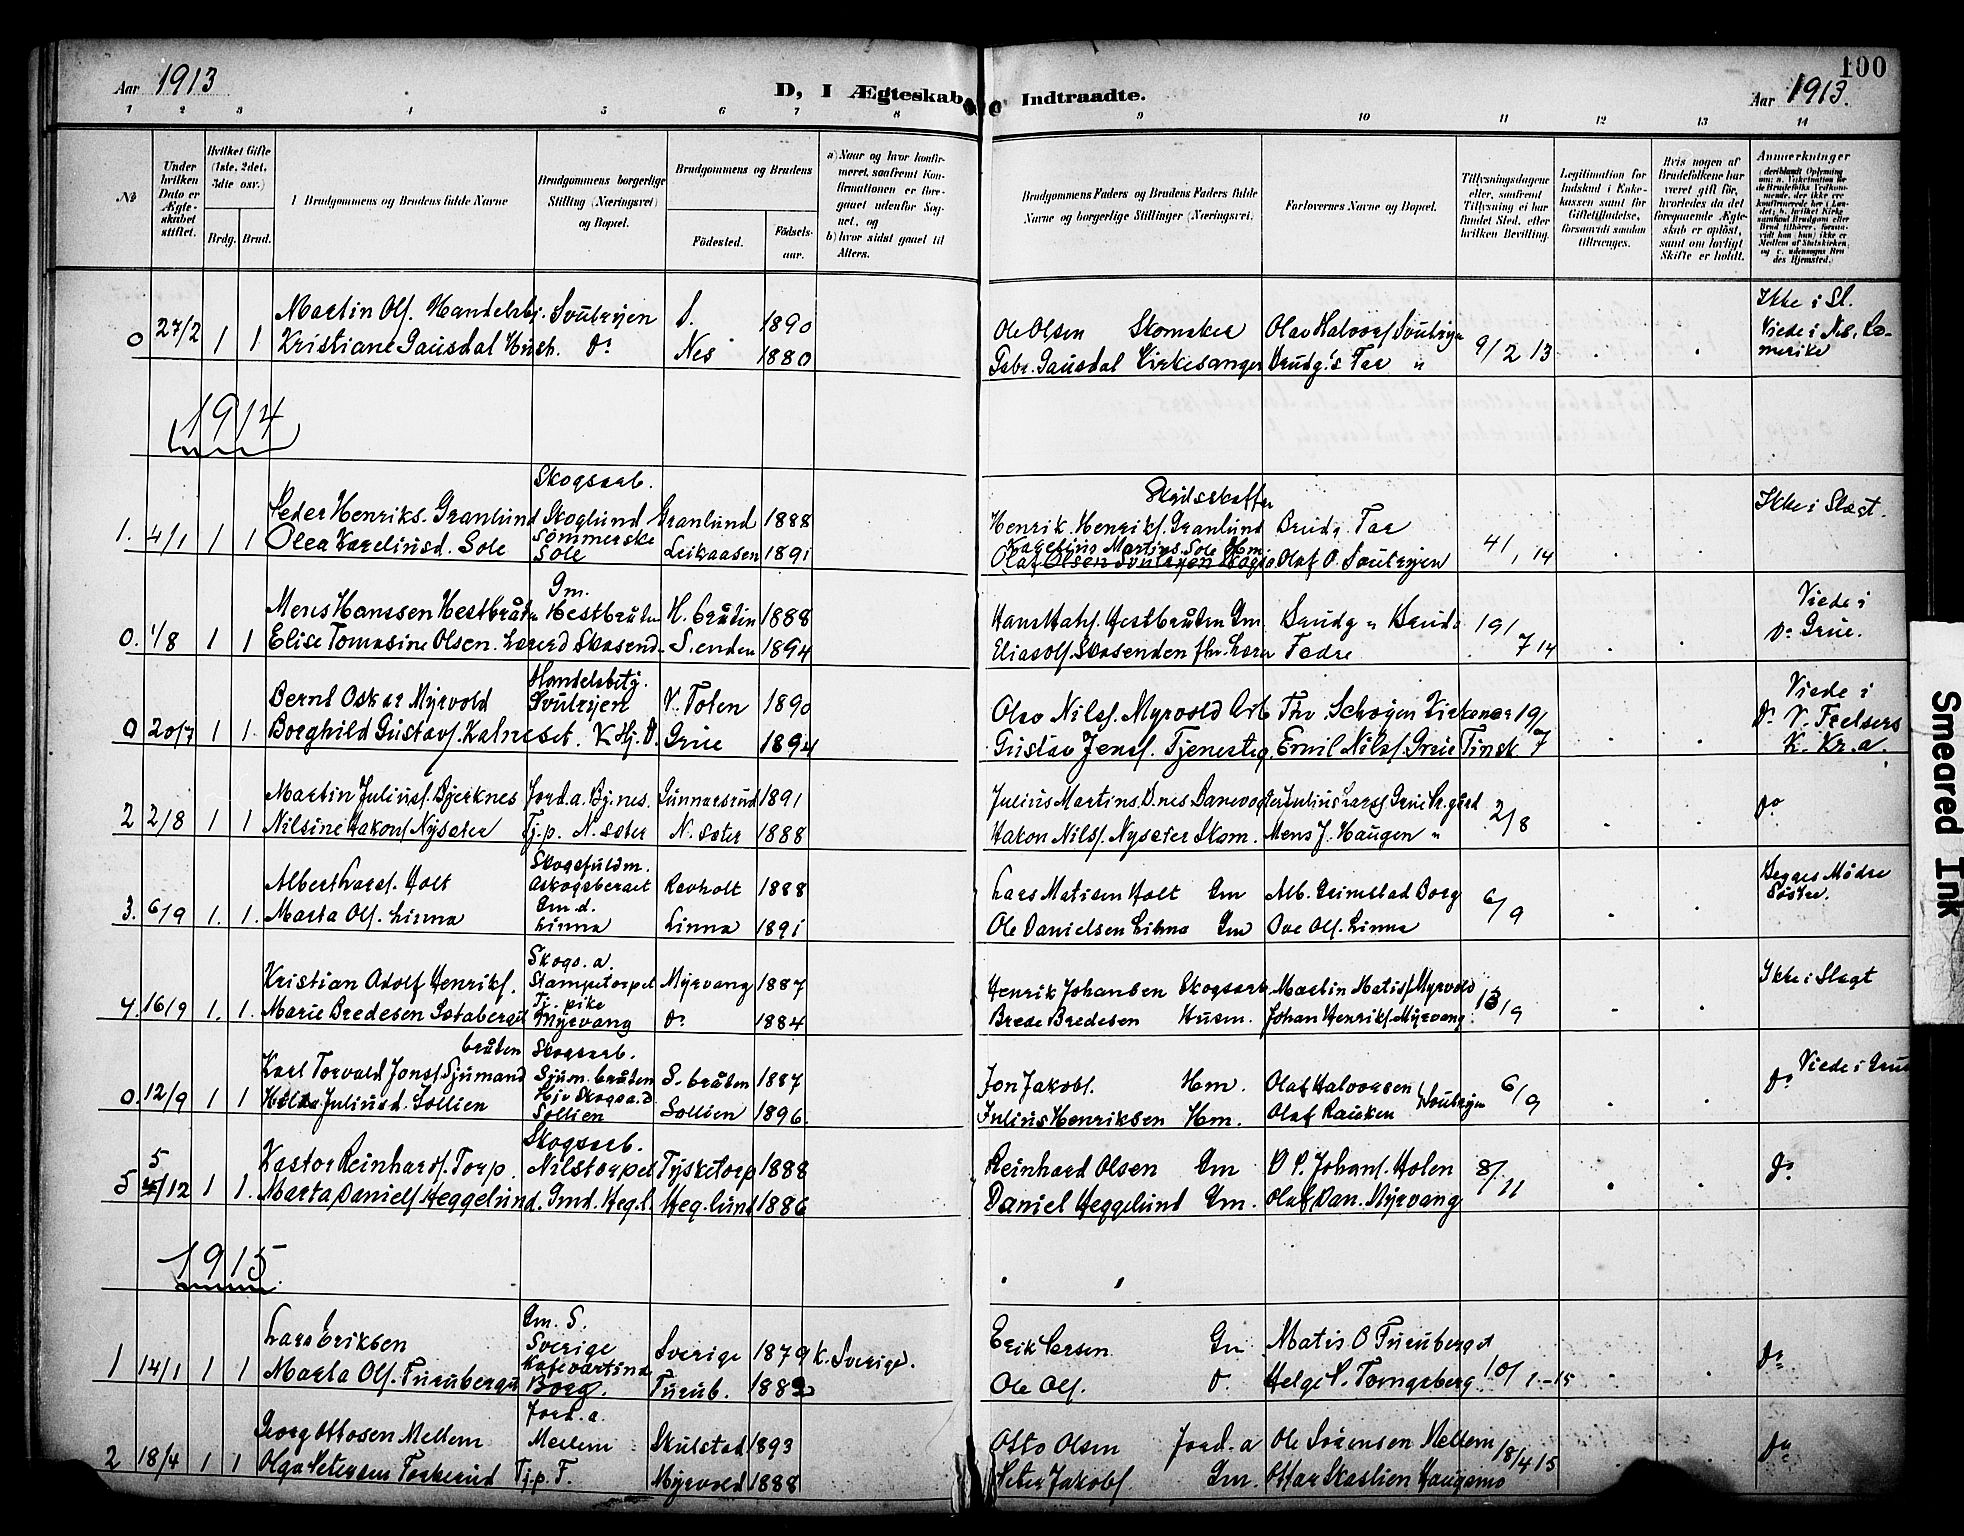 Aar 1913
D, I Ægteskab Indtraadte.
100
Aar 1913.
1 2 3 4 5 6 7 8 9 10 11 12 13 14
No
Under hvilken Dato er Ægteskabet stiftet.
Hvilket Gifte (1ste, 2det, 3die osv.)
Brdg. Brud.
Brudgommens og Brudens fulde Navne
Brudgommens borgerlige Stilling (Næringsvei) og Bopæl.
Brudgommens og Brudens
Fødested.
Fødselsaar.
a) Naar og hvor konfirmeret, saafremt Konfirmationen er foregaaet udenfor Sognet, og
b) hvor sidst gaaet til Alters.
Brudgommens Faders og Brudens Faders fulde Navne og borgerlige Stillinger (Næringsvei).
Forlovernes Navne og Bopæl.
Tillysningsdagene eller, saafremt Tillysning ei har fundet Sted, efter hvilken Bevilling.
Legitimation for Indskud i Enkekassen samt for Giftetilladelse, forsaavidt saadan tiltrænges.
Hvis nogen af Brudefolkene har været gift før, hvorledes da det foregaaende Ægteskab er opløst, samt om lovligt Skifte er holdt.
Anmerkninger
0 27/2 1 1 Martin Ols. Handelsbtj. Svulryen S. 1890 Ole Olsen Skomaker Olav Halvors. Svulrya 9/2 13 Ikke i Sl.
Kristiane Gausdal Hush. do Nes 1880 Gabr. Gausdal Kirkesanger Brudg.s Far " Viede i N.b. Romerike
1914
Skogsarb. Skydsskaffer
1. 4/1 1 1 Peder Henriks. Granlund Skoglund Granlund 1888 Henrik Henriks. Granlund Brudg Far 4/1 14 Ikke i Slegt.
Sømmerske Karelius Martins. Sole Hm.
Olea Kareliusd. Sole Sole Leikaasen 1891 Olaf Olsen Svulryen Skogsa Olaf O. Svulryen
Gm.
0. 1/8 1 1 Mens Hanssen Hestbråten Hestbråten H. bråtin 1888 Hans Hans. Hestbråten Gm. Brudg " Bruds 19/7 14 Viede i
Elise Tomasine Olsen. Lærerd Skasend. S.enden 1894 Elias Ols. Skasenden fhv. Lærer Fedre do Grue.
0 20/7 1 1. Bernt Oskar Myrvold Handelsbetj. Svulryen V. Toten 1890 Olav Nils. Myrvold Arb Thv. Schøyen Kirkenær 19/7 Viede i
Borghild Gustavs. Kalneset. K Hj. D. Grue 1894 Gustav Jens. Tjenesteg. Emil Nils. Grue Tinsk do V. Frelsers K. Kr.a.
2 2/8 1 1 Martin Julius. Bjerknes Jord.a. Bj.nes. Gunnarsrud 1891 Julius Martins. B.nes Banevogter Julius Lars. Grue Pr.gård 2/8 do
Nilsine Hakons. Nysæter Tj.p. N. sæter N. sæter 1888 Hakon Nils. Nysæter Skom. Mens J. Haugen "
3. 6/9 1. 1. Albert Lars. Holt Skogsfuldm. Ravholt 1888 Lars Matisen Holt Gm Alb. Grimstad Borg 6/9 Begges Mødre Søstre.
Marta Ols. Linna Gm.d. Linna Linna 1891 Ole Danielsen Linna Gm Ove Ols. Linna
4. 16/9 1. 1. Kristian Adolf Henriks. Skogs.a. Stampetorpet Myrvang 1887 Henrik Johansen Skogsarb. Martin Matis. Myrvold 13/9 Ikke i Slegt
Marie Bredesen Sætaberget Tj. pike Myrvang do 1884 Brede Bredesen Husm. Johan Henriks. Myrvang
bråten Skogsarb.
0. 12/9 1 1 Karl Torvald Jons. Sjumand Sjum. bråten S. bråten 1887 Jon Jakobs. Hm. Olaf Halvorsen Svulrya 6/9 do Viede i Grue
Hilda Juliusd. Sollien Hj v Skogsa.d Sollien Sollien 1896 Julius Henriksen Hm. Olaf Rauken
5 5/12 1 1. Kastor Reinhards. Torp. Skogsarb. Nilstorpet Tysketorp 1888 Reinhard Olsen Gm O P. Johans. Holen 8/11 do
Marta Daniels. Heggelund. Gmd. Heg.l. Heg. lund 1886 Daniel Heggelund Gm. Olaf Dan. Myrvang
1915
1 14/1 1 1 Lars Eriksen Gm. S. Sverige Sverige 1879 K. Sverige. Erik Larsen Gm Matis O Furuberget 10/1-15 do
Marta Ols. Furuberget Kafevartinde Borg. Furub. 1882 Ole Ols. do Helge P. Tomgsberg
2 18/4 1 1 Georg Ottosen Mellem Jord.a. Mellem Skulstad 1893 Otto Olsen Jord.a Ole Sørensen Mellem 18/4 15 do
Olga Petersen Torkerud Tj.p. T. Myrvold 1888 Peter Jakobs. Gm. Ottar Skaslien Haugsmo
Smeared Ink